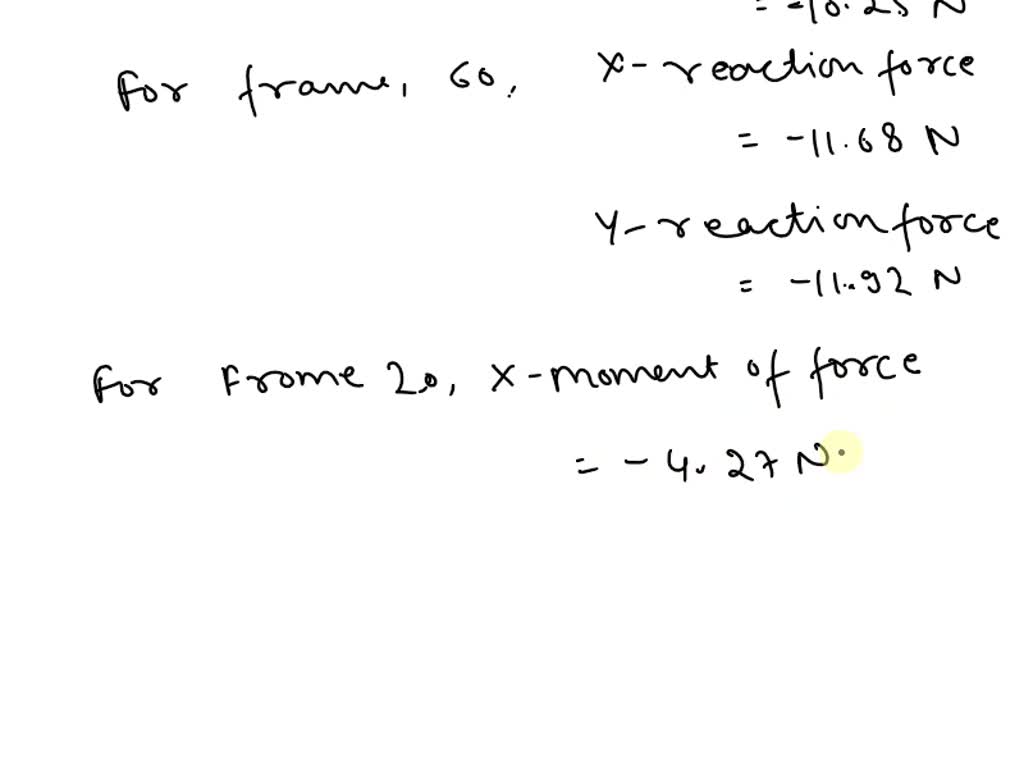 = -10.25 N
For frame, 60, X-reaction force
= -11.68 N
Y-reaction force
= -11.92 N
For Frome 20, X-moment of force
= -4.27 N.